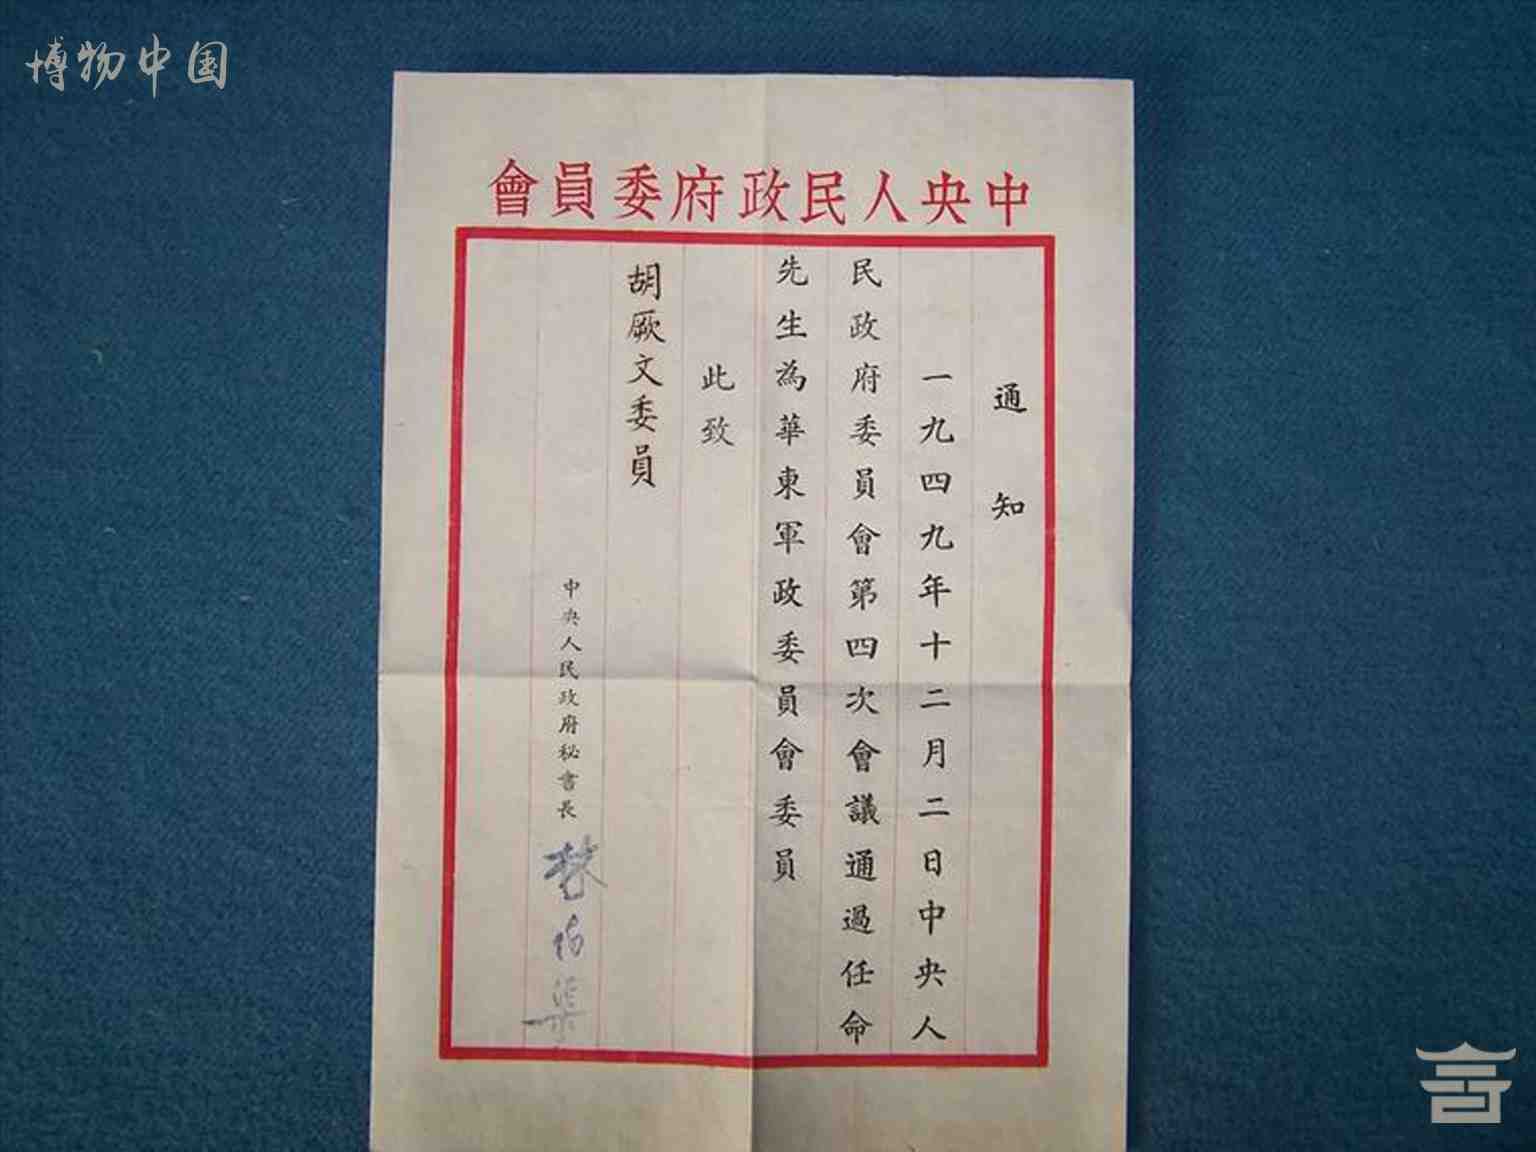 博物中国
中央人民政府委員會
通知
一九四九年十二月二日中央人
民政府委員會第四次會議通過任命
先生為華東軍政委員會委員
此致
胡厥文委員
中央人民政府秘書長
林伯渠